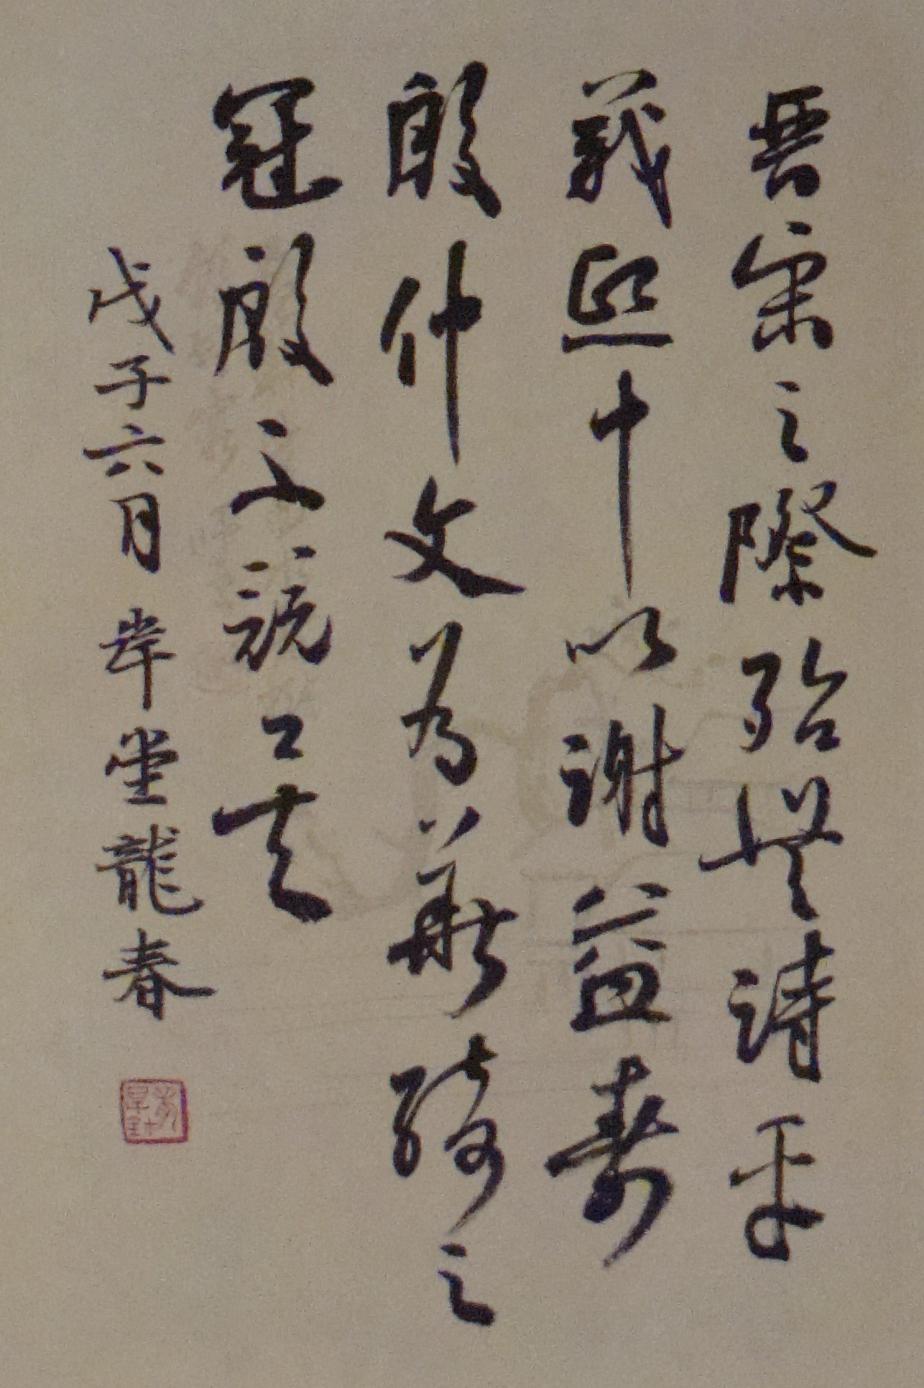 晉宋之際殆無詩乎
義熙中以謝益壽
殷仲文為華綺之
冠殷不競矣
戊子六月岸堂龍春